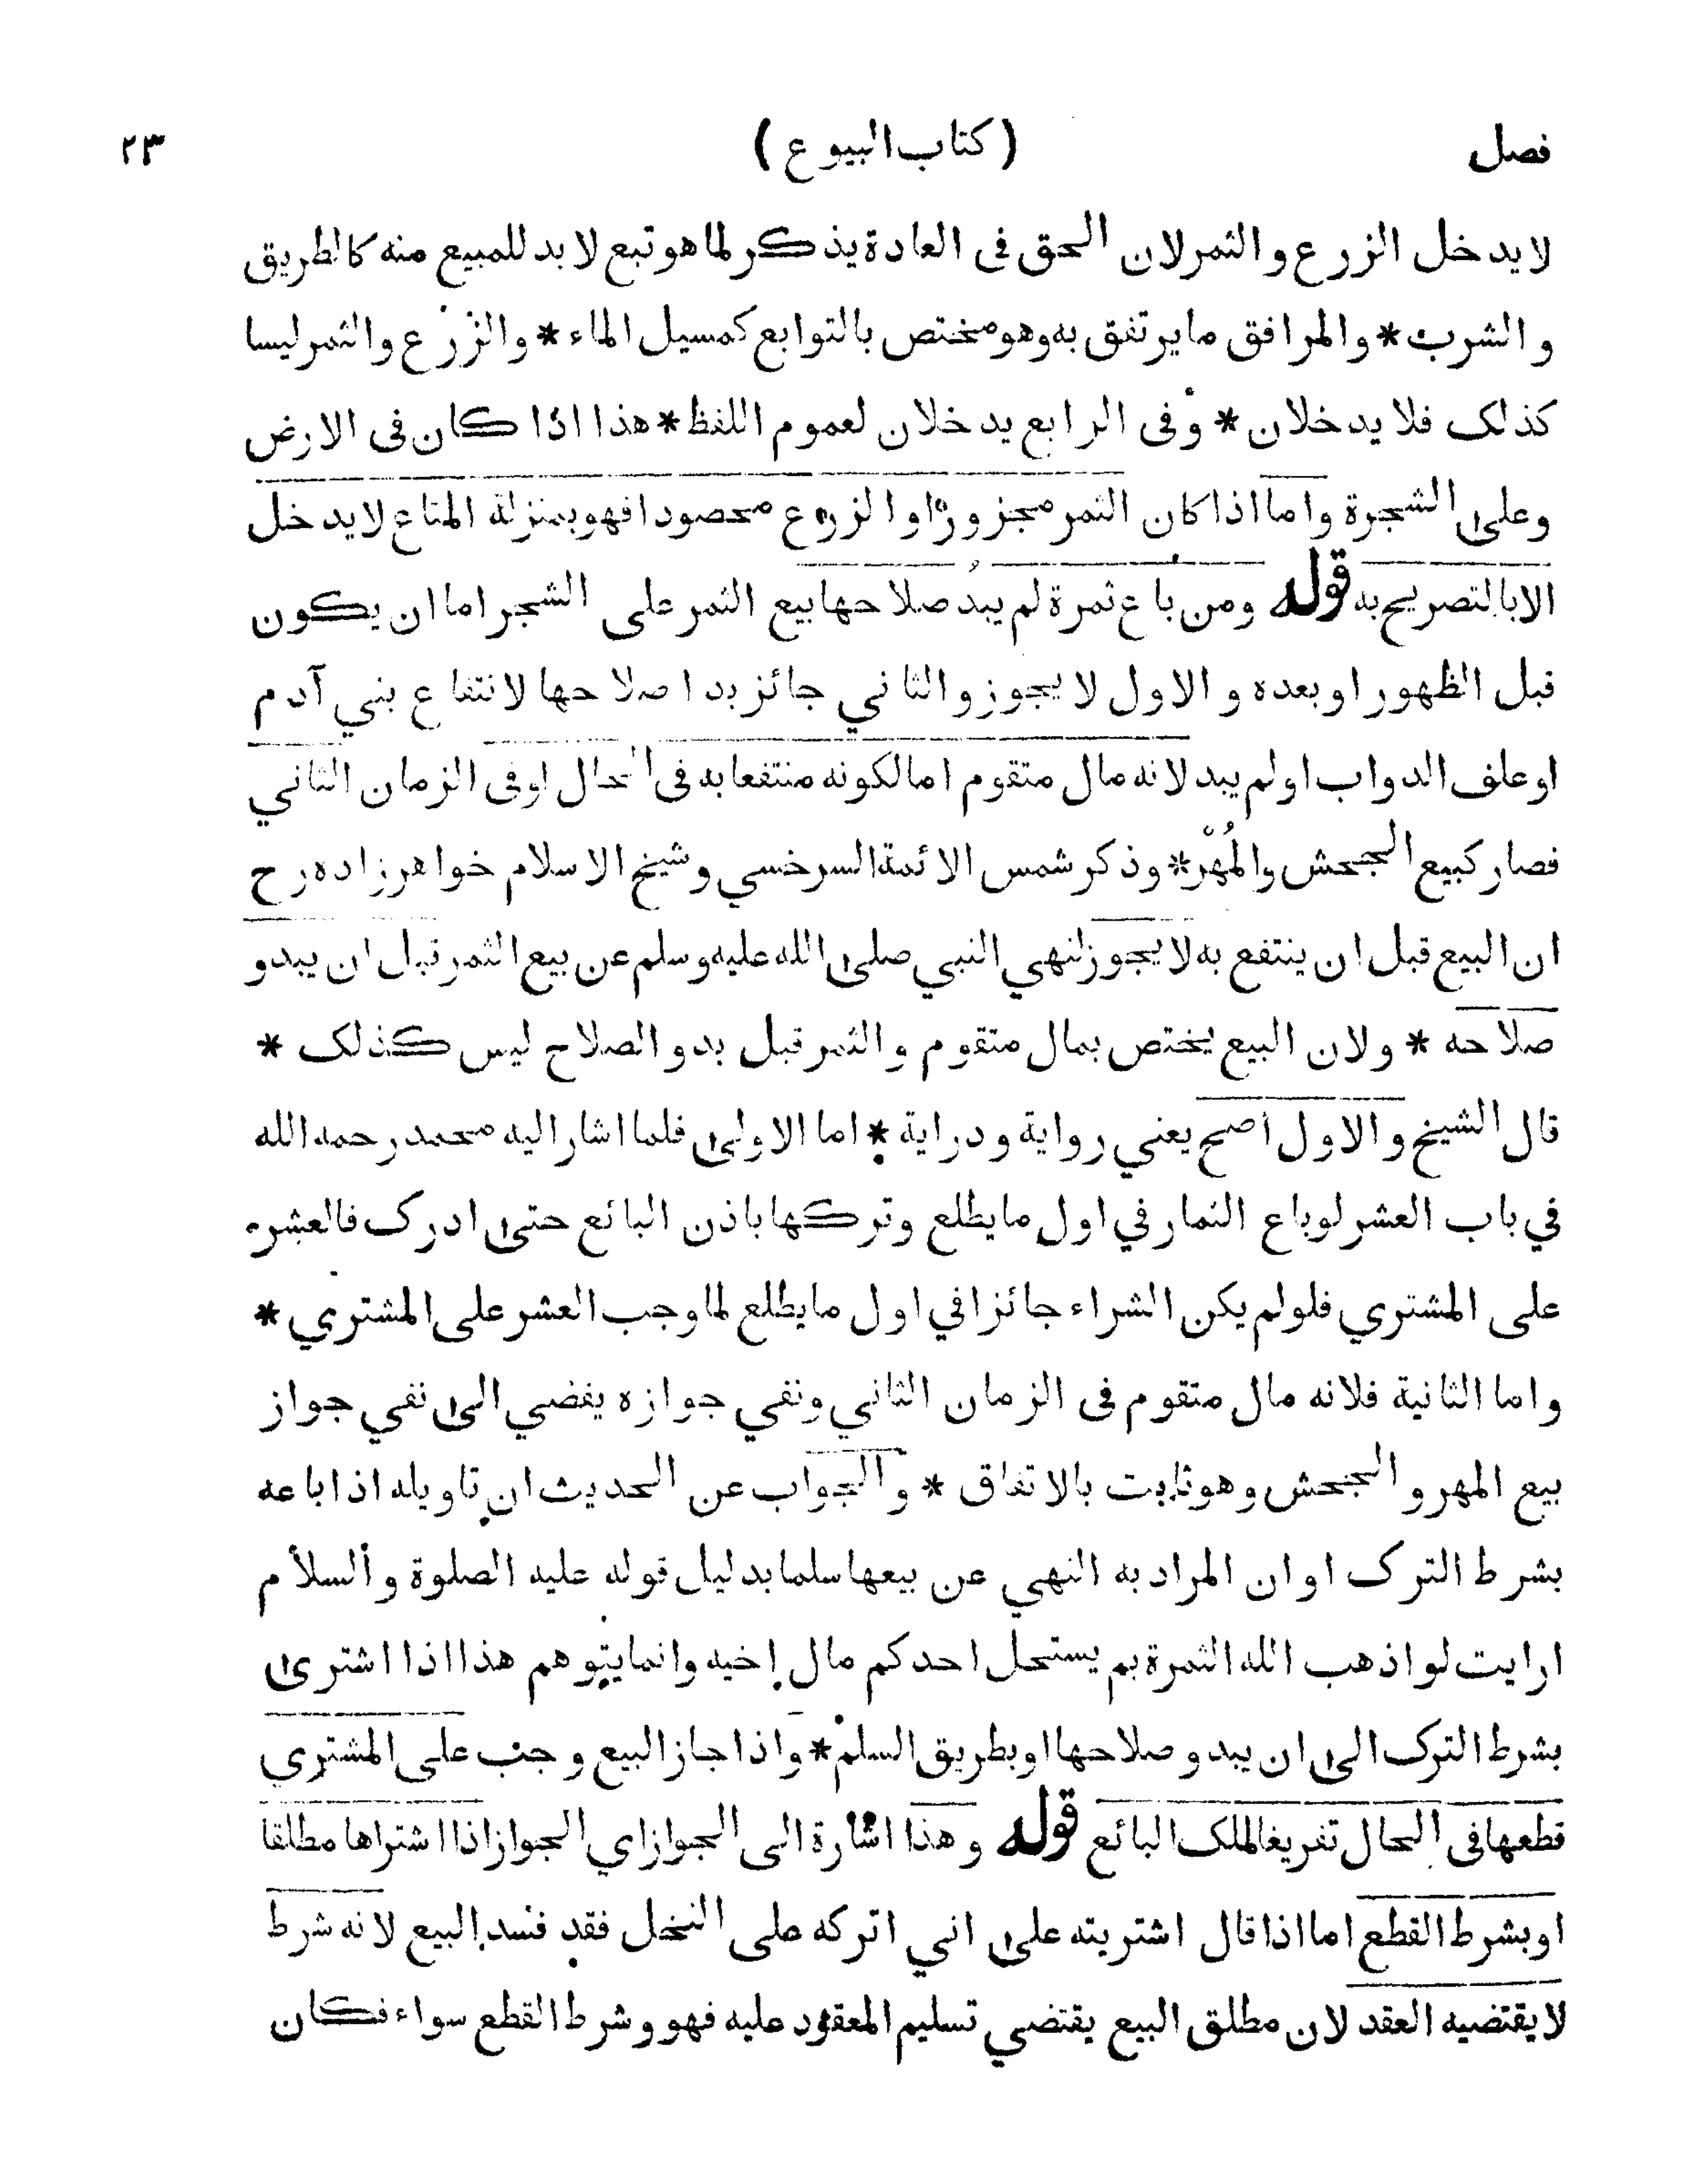 فصل (كتاب البيوع) ٢٣
لا يدخل الزرع والثمر لان الحق فى العادة يذكر لما هو تبع لا بد للمبيع منه كالطريق
والشرب * والمرافق ما يرتفق به وهو مختص بالتوابع كمسيل الماء * والزرع والثمر ليسا
كذلك فلا يدخلان * وفى الرابع يدخلان لعموم اللفظ * هذا اذا كان فى الارض
وعلى الشجرة واما اذا كان الثمر مجزوزا والزرع محصودا فهو بمنزلة المتاع لا يدخل
الا بالتصريح به قوله ومن باع ثمرة لم يبدُ صلاحها بيع الثمر على الشجر اما ان يكون
قبل الظهور او بعده والاول لا يجوز والثاني جائز بدا صلاحها لانتفاع بني آدم
او علف الدواب اولم يبد لانه مال متقوم اما لكونه منتفعا به فى الحال او فى الزمان الثاني
فصار كبيع الجحش والمُهْر * وذكر شمس الائمة السرخسي وشيخ الاسلام خواهرزاده رح
ان البيع قبل ان ينتفع به لا يجوز لنهي النبي صلى الله عليه وسلم عن بيع الثمر قبل ان يبدو
صلاحه * ولان البيع يختص بمال متقوم والثمر قبل بدو الصلاح ليس كذلك *
قال الشيخ والاول اصح يعني رواية ودراية * اما الاولى فلما اشار اليه محمد رحمه الله
في باب العشر لو باع الثمار في اول ما يطلع وتركها باذن البائع حتى ادرك فالعشر
على المشتري فلو لم يكن الشراء جائزا في اول ما يطلع لما وجب العشر على المشتري *
واما الثانية فلانه مال متقوم فى الزمان الثاني ونفي جوازه يفضي الى نفي جواز
بيع المهر والجحش وهو ثابت بالاتفاق * والجواب عن الحديث ان تاويله اذا باعه
بشرط الترك او ان المراد به النهي عن بيعها سلما بدليل قوله عليه الصلوة والسلام
ارايت لو اذهب الله الثمرة بم يستحل احدكم مال اخيه وانما يتوهم هذا اذا اشترى
بشرط الترك الى ان يبدو صلاحها او بطريق السلم * واذا جاز البيع وجب على المشتري
قطعها فى الحال تفريغا لملك البائع قوله وهذا اشارة الى الجواز اي الجواز اذا اشتراها مطلقا
او بشرط القطع اما اذا قال اشتريته على اني اتركه على النخل فقد فسد البيع لانه شرط
لا يقتضيه العقد لان مطلق البيع يقتضي تسليم المعقود عليه فهو وشرط القطع سواء فكان